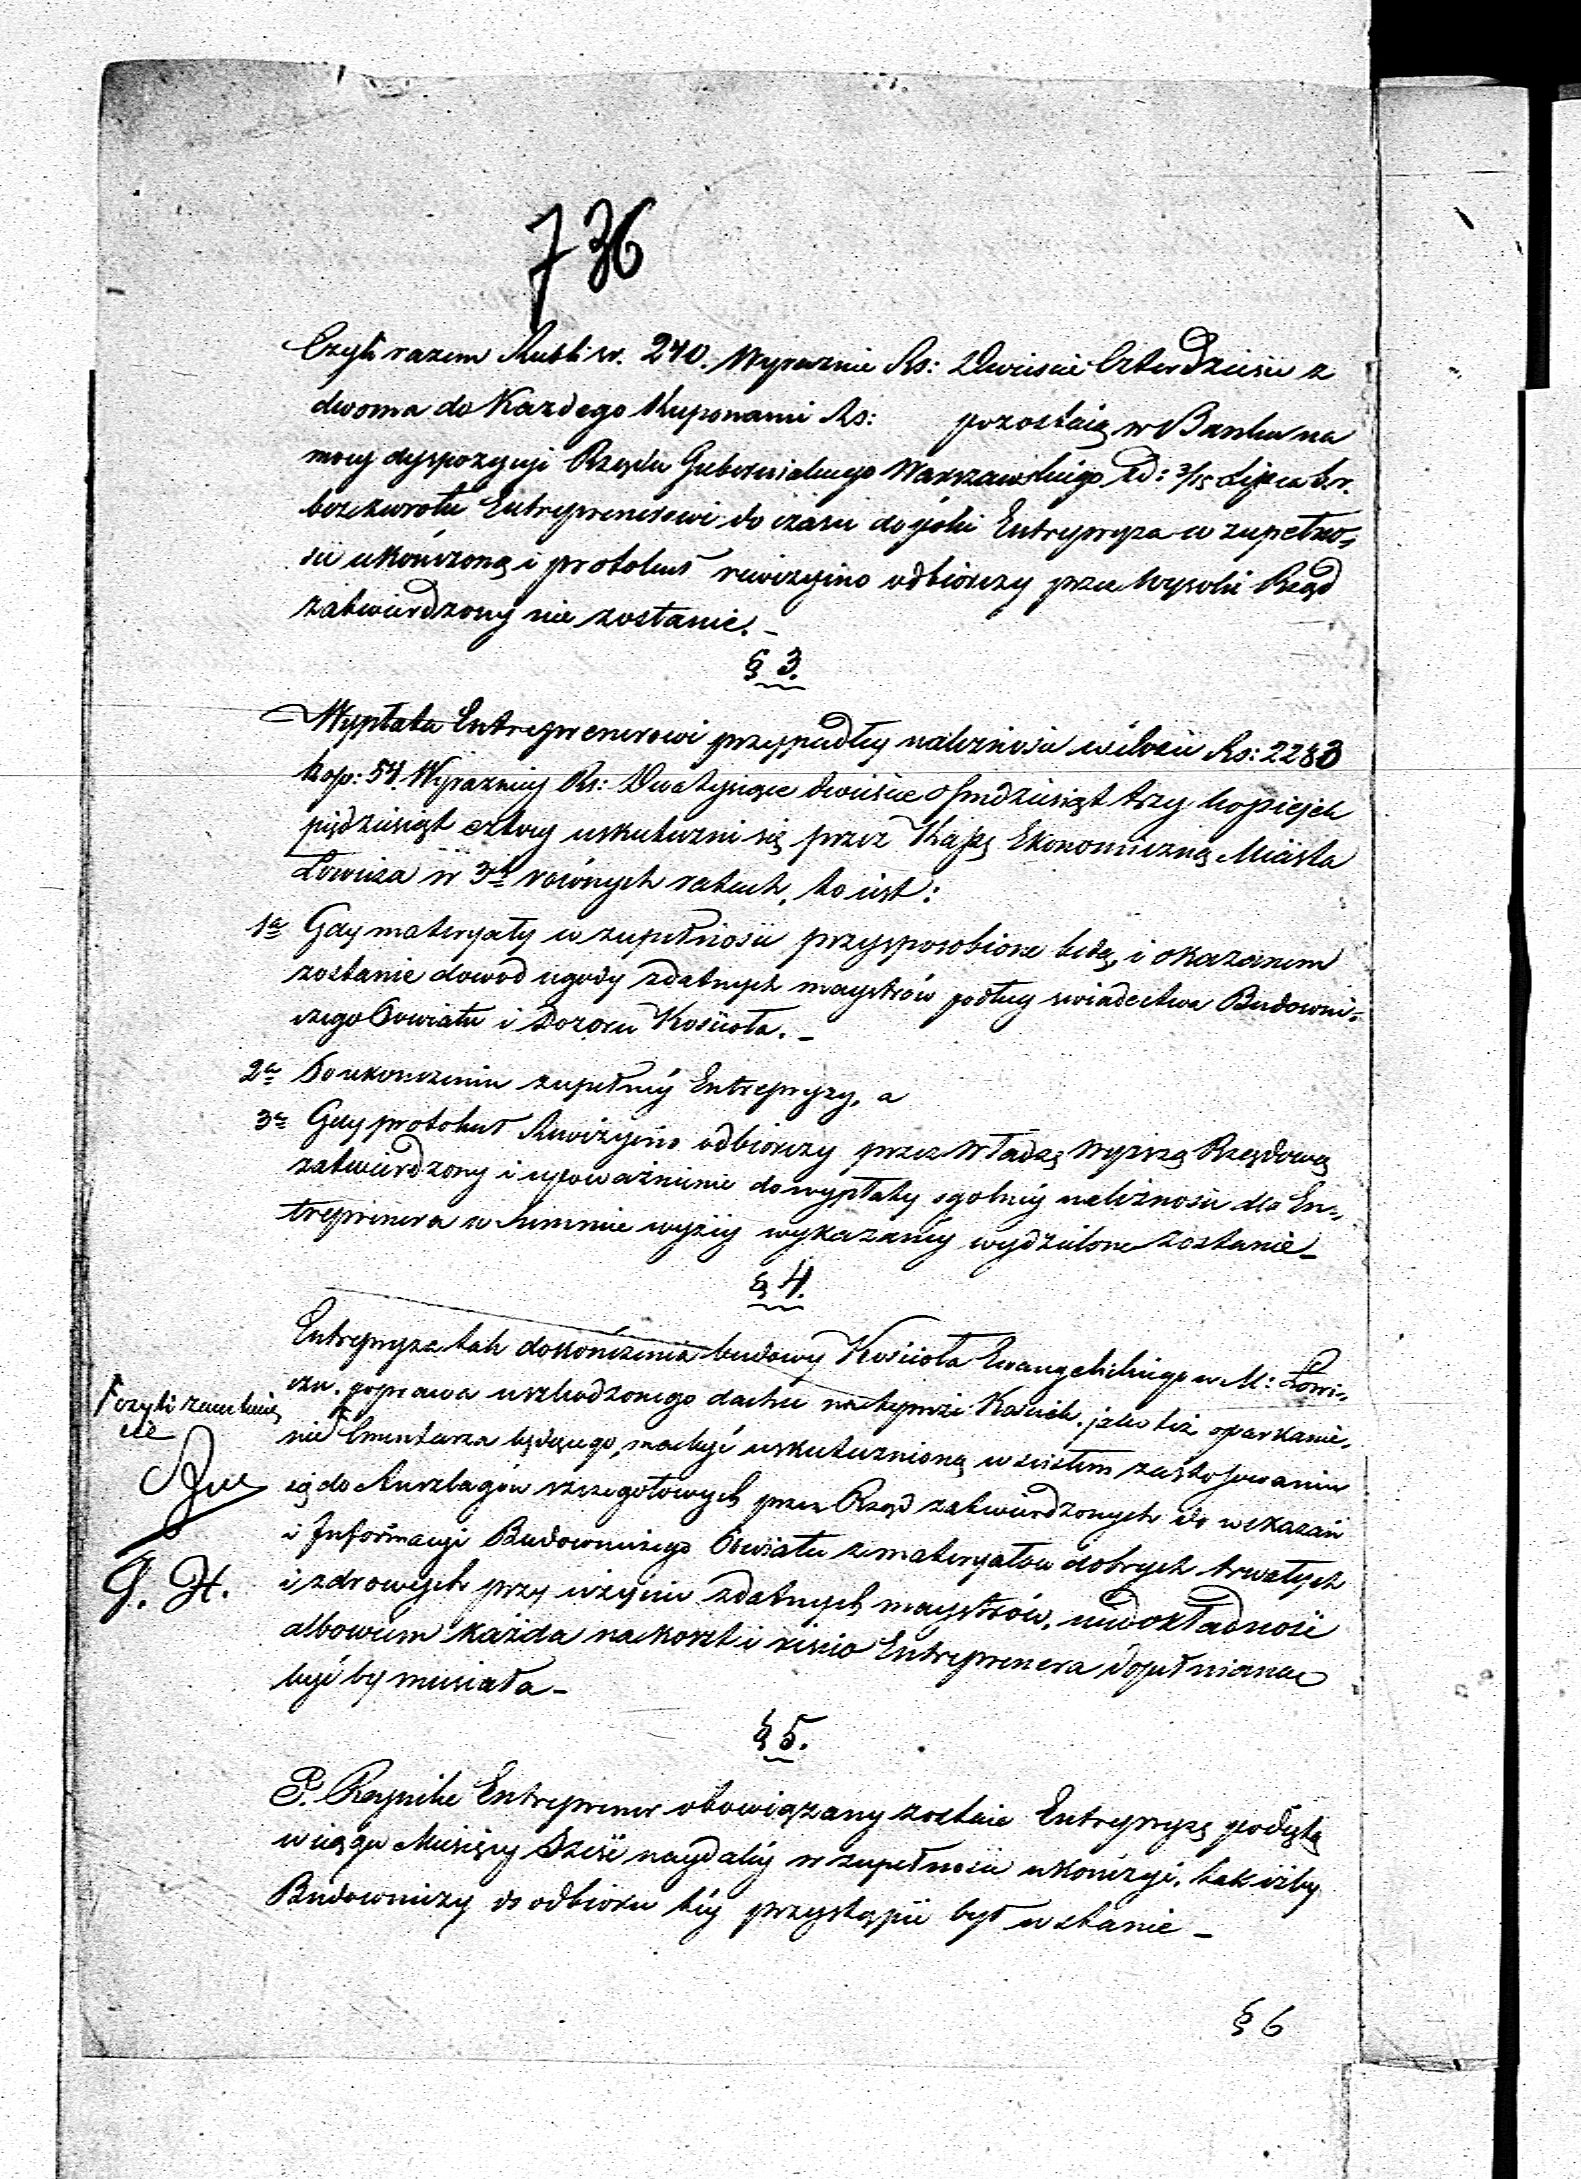 736
Czyli razem Rubli sr. 240. Wyraznie Rs: Dwieście Czterdzieście z
dwoma do Każdego Kuponami Rs: pozostaią w Banku na
mocy dyspozycyi Rządu Gubernialnego Warszawskiego d: 3/15 Lipca b.r.
bezzwrotu Entreprenerowi do czasu dopóki Entrepryza w zupełno=
ści ukończoną i protokuł rewizyino odbiorczy przez Wysoki Rząd
zatwierdzony nie zostanie. _
§ 3.
Wypłata Entreprenerowi przypadłey należności w ilości Rs: 2283
kop: 54. Wyrazniey Rs: Dwa tysiące dwieście ośmdziesiąt trzy kopiejek
pięćdziesiąt cztery uskuteczni się przez Kassę Ekonomiczną Miasta
Łowicza w 3ch rownych ratach, to iest:
1a Gdy materyały w zupełności przysposobione będą, i okazanem
zostanie dowod ugody zdatnych maystrów podług swiadectwa Budowni=
czego Powiatu i Dozoru Kościoła. _
2a Po ukonczeniu zupełnéy Entrepryzy, a
3a Gdy protokuł Rewizyino odbiorczy przez Władzę wyższą Rządową
zatwierdzony i upoważnienie do wypłaty ogolnéy należności dla En=
treprenera w Summie wyżéy wykazanéy wydzielone zostanie _
§ 4.
Entrepryza tak dokończenia budowy Kościoła Ewangelickiego w M: Łowi=
czu, poprawa uszkodzonego dachu na tymże Kościele, jako też oparkanie,
nie Cmentarza będącego, ma być uskutecznioną w scisłem zastosowaniu
się do Anszlagów szczegołowych przez Rząd zatwierdzonych do wskazań
i Informacyi Budowniczego Powiatu z materyałow dobrych trwałych
i zdrowych przy użyciu zdatnych maystrów, niedokładność
albowiem każda na koszt i risico Entreprenera dopełnianae
być by musiała _
czyli zamknię
cie
G. H.
§ 5.
P. Reynike Entreprener obowiązany zostaie Entrepryzę podjętą
w ciągu Miesięcy Sześć naydaléy w zupełności ukończyć, tak iżby
Budowniczy do odbioru téy przystąpić był w stanie _
§ 6